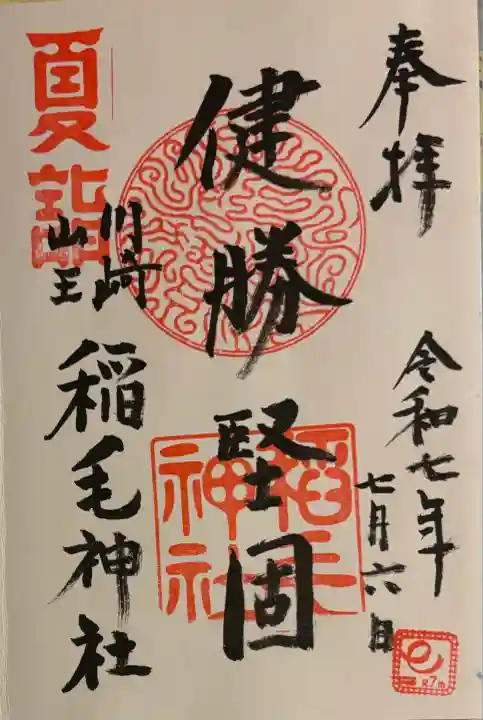 奉拝
令和七年
七月六日
健勝堅固
夏詣
川崎
山王
稲毛神社
稲毛神社
R7th